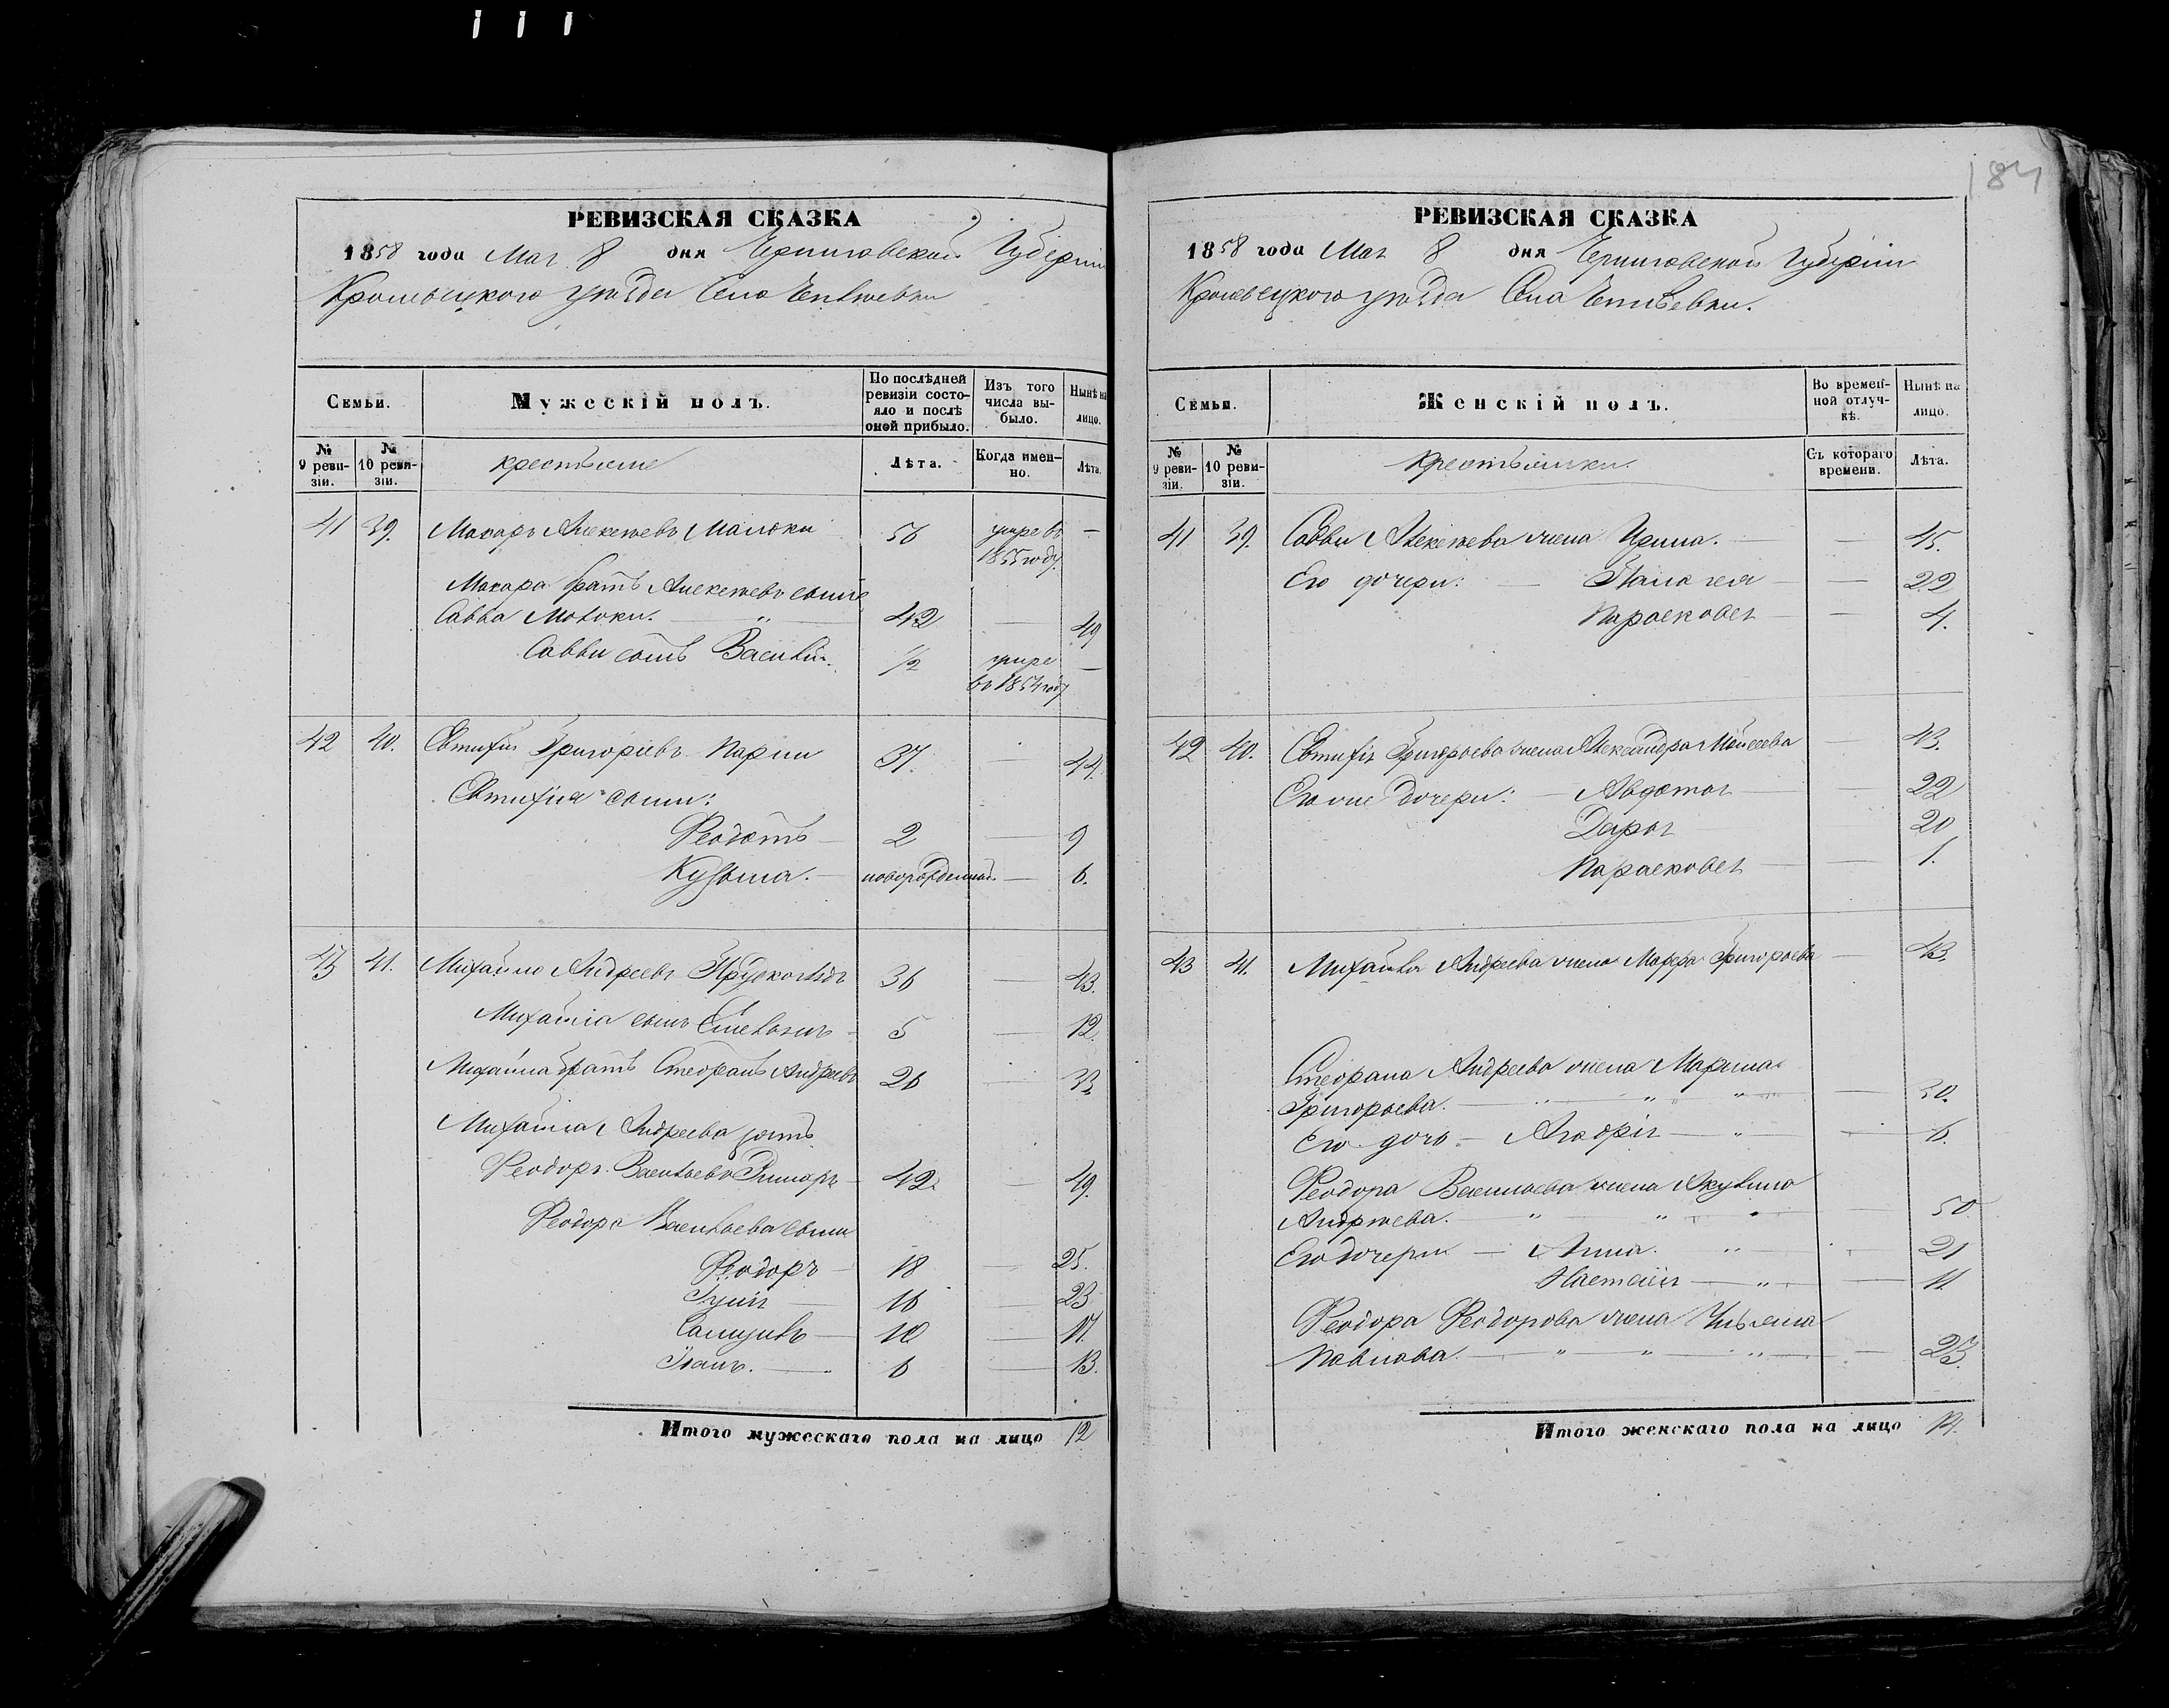 184
РЕВИЗСКАЯ СКАЗКА
1858 года Мая 8 дня Черниговской Губерніи
Кролевецкого уѣзда Села
Семьи.
Мужескій полъ.
По послѣдней ревизіи состояло и послѣ оной прибыло.
Изъ того числа выбыло.
Нынѣ на лицо.
№ 9 ревизіи.
№ 10 ревизіи.
крестьяне
Лѣта.
Когда именно.
Лѣта.
41 39. Макаръ Алексѣевъ 56 умре въ 1855 году. —
Макара братъ Алексѣевъ
Савва 42 — 49
Саввы сынъ Василій. 1/2 умре въ 1854 году —
42 40. Евтифій Григоріевъ 37. — 44.
Евтифія сыны:
Феодотъ — 2 — 9
Кузьма. — новорожденный — 6.
43 41. Михайло Андреевъ 36 — 43.
Михайла сынъ 5 — 12.
Михайла братъ Стефанъ Андреевъ 26 — 33
Михайла Андреева зять
Феодоръ Васильевъ 42 — 49.
Феодора Васильева сыны
Феодоръ — 18 — 25.
16 — 23
Самуилъ — 10 — 17.
Иванъ. — 6 — 13.
Итого мужескаго пола на лицо 12
РЕВИЗСКАЯ СКАЗКА
1858 года Мая 8 дня Черниговской Губерніи
Кролевецкого уѣзда Села
Семьи.
Женскій полъ.
Во временной отлучкѣ.
Нынѣ на лицо.
№ 9 ревизіи.
№ 10 ревизіи.
крестьянки.
Съ котораго времени.
Лѣта.
41 39. Саввы Алексѣева жена Ирина. — — 45.
Его дочери: — Пелагея — — 22
Парасковея — — 4.
42 40. Евтифія Григорьева жена Александра Моисеева — 43.
Его же дочери: — Авдотья — — 22
Дарья 20
Парасковея — — 1.
43 41. Михайла Андреева жена Марфа Григорьева — 43.
Стефана Андреева жена Марина
Григорьева. — " " " — 30.
Его дочь — — " — 6.
Феодора Васильева жена Акулина
Андреева. — " " " — 50
Его дочери — Анна. " 21
Настасія — " — 11.
Феодора Феодорова жена Ульяна
Павлова. — " " " — 23.
Итого женскаго пола на лицо 14.